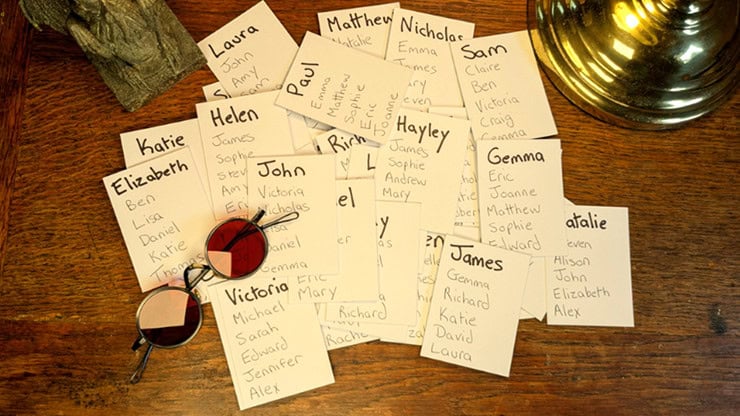 Laura
John
Amy
Matthew
Natalie
Nicholas
Emma
James
Sam
Claire
Ben
Victoria
Craig
Gemma
Paul
Emma
Matthew
Sophie
Eric
Joanne
Katie
Helen
James
Sophie
Amy
Hayley
James
Sophie
Andrew
Mary
Gemma
Eric
Joanne
Matthew
Sophie
Edward
Elizabeth
Ben
Lisa
Daniel
Katie
Thomas
John
Victoria
Daniel
Gemma
Eric
Mary
Richard
James
Gemma
Richard
Katie
David
Laura
atalie
even
Alison
John
Elizabeth
Alex
Victoria
Michael
Sarah
Edward
Jennifer
Alex